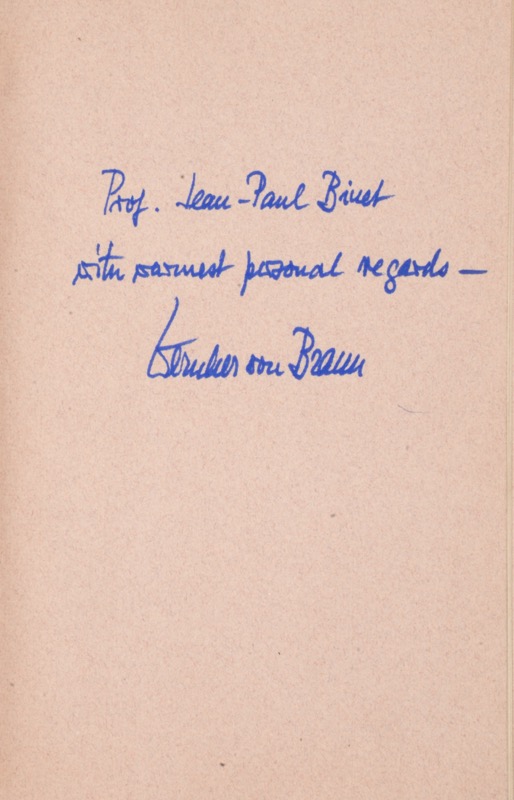 Prof. Jean-Paul Binet
with warmest personal regards —
Wernher von Braun